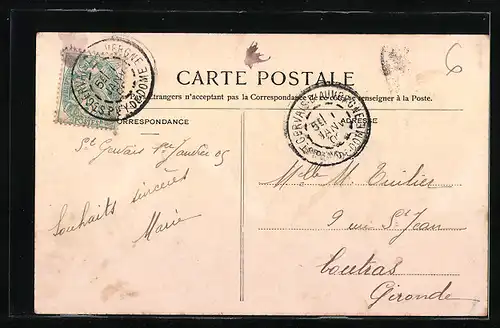 6
CARTE POSTALE
étrangers n'acceptant pas la Correspondance de renseigner à la Poste.
CORRESPONDANCE
ADRESSE
ST GERVAIS-D'AUVERGNE
PUY-DE-DOME
JANV
St Gervais 1er Janvier 05
Souhaits sincères
Marie
Melle M. Tuilier
9 rue St Jean
Coutras
Gironde